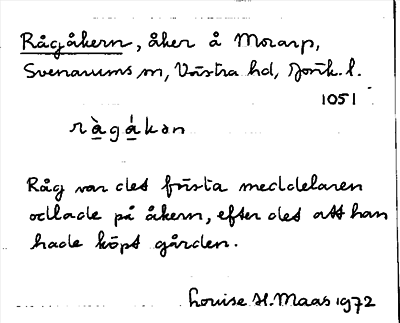 Rågåkern, åker å Morarp,
Svenarums sn, Västra hd, Jönk. l.
1051
ràgákan
Råg var det första meddelaren
odlade på åkern, efter det att han
hade köpt gården.
Louise H. Maas 1972